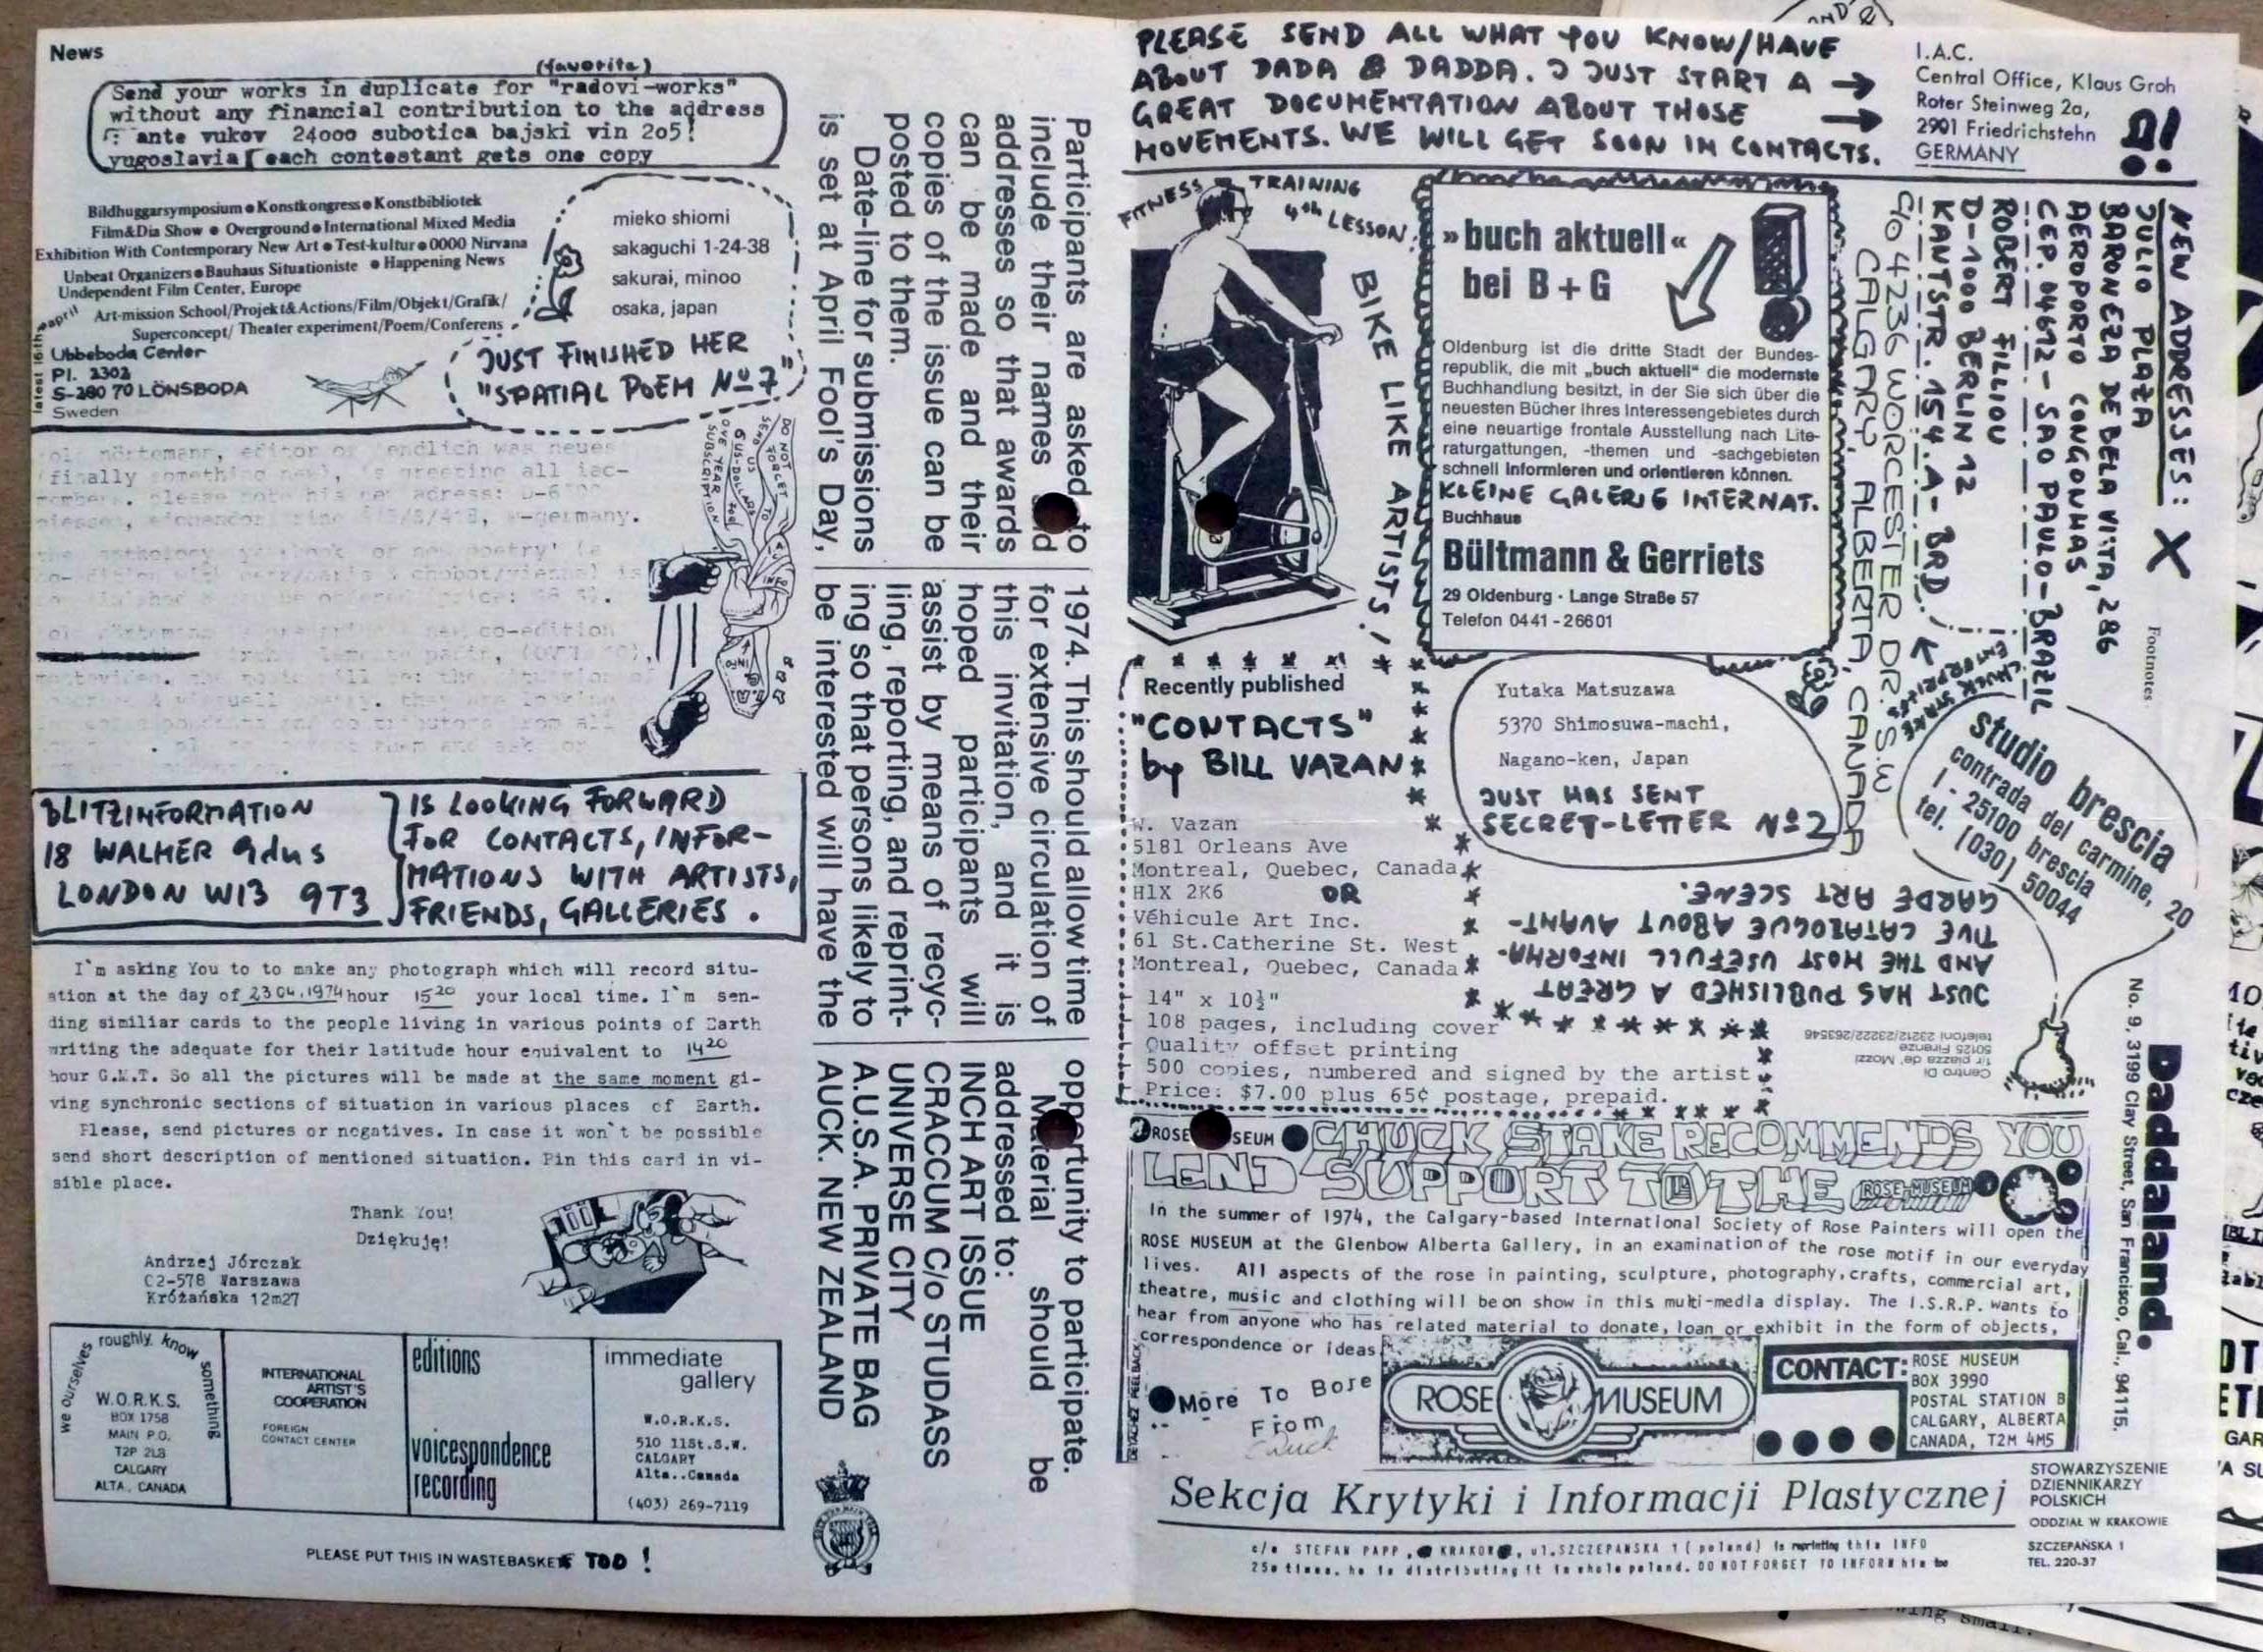 News
(favorite)
Send your works in duplicate for "radovi-works"
without any financial contribution to the address
: ante vukov 24ooo subotica bajski vin 2o5!
yugoslavia each contestant gets one copy
Bildhuggarsymposium ● Konstkongress ● Konstbibliotek
Film&Dia Show ● Overground ● International Mixed Media
Exhibition With Contemporary New Art ● Test-kultur ● 0000 Nirvana
Unbeat Organizers ● Bauhaus Situationiste ● Happening News
Undependent Film Center, Europe
Art-mission School/Projekt&Actions/Film/Objekt/Grafik/
Superconcept/ Theater experiment/Poem/Conferens
latest 16th april
Ubbeboda Center
Pl. 2302
S-280 70 LÖNSBODA
Sweden
mieko shiomi
sakaguchi 1-24-38
sakurai, minoo
osaka, japan
JUST FINISHED HER
"SPATIAL POEM Nº 7"
DO NOT FORGET TO
SEND US
6 US-DOLLARS FOR
ONE YEAR
SUBSCRIPTION
INFO
INFO
mörtemann, editor of endlich was neues
(finally something new), is greeting all iac-
members. please note his new adress: D-6300
giessen, eichendorffring, w-germany.
BLITZINFORMATION
18 WALMER Gdns
LONDON W13 9T3
IS LOOKING FORWARD
FOR CONTACTS, INFOR-
MATIONS WITH ARTISTS,
FRIENDS, GALLERIES.
I`m asking You to to make any photograph which will record situ-
ation at the day of 23 04.1974 hour 15²⁰ your local time. I`m sen-
ding similiar cards to the people living in various points of Earth
writing the adequate for their latitude hour equivalent to 14²⁰
hour G.M.T. So all the pictures will be made at the same moment gi-
ving synchronic sections of situation in various places of Earth.
Please, send pictures or negatives. In case it won`t be possible
send short description of mentioned situation. Pin this card in vi-
sible place.
Thank You!
Dziękuję!
Andrzej Jórczak
02-578 Warszawa
Króżańska 12m27
we ourselves roughly know something
W.O.R.K.S.
BOX 1758
MAIN P.O.
T2P 2L8
CALGARY
ALTA., CANADA
INTERNATIONAL
ARTIST'S
COOPERATION
FOREIGN
CONTACT CENTER
editions
voicespondence
recording
immediate
gallery
W.O.R.K.S.
510 11St.S.W.
CALGARY
Alta..Canada
(403) 269-7119
PLEASE PUT THIS IN WASTEBASKET TOO !
Participants are asked to
include their names and
addresses so that awards
can be made and their
copies of the issue can be
posted to them.
Date-line for submissions
is set at April Fool's Day,
1974. This should allow time
for extensive circulation of
this invitation, and it is
hoped participants will
assist by means of recyc-
ling, reporting, and reprint-
ing so that persons likely to
be interested will have the
opportunity to participate.
Material should be
addressed to:
INCH ART ISSUE
CRACCUM C/o STUDASS
UNIVERSE CITY
A.U.S.A. PRIVATE BAG
AUCK. NEW ZEALAND
PLEASE SEND ALL WHAT YOU KNOW/HAVE
ABOUT DADA & DADDA. I JUST START A →
GREAT DOCUMENTATION ABOUT THOSE →
MOVEMENTS. WE WILL GET SOON IN CONTACTS.
I.A.C.
Central Office, Klaus Groh
Roter Steinweg 2a,
2901 Friedrichstehn
GERMANY
!
FITNESS TRAINING
4th LESSON:
BIKE LIKE ARTISTS!
» buch aktuell «
bei B + G
Oldenburg ist die dritte Stadt der Bundes-
republik, die mit „buch aktuell“ die modernste
Buchhandlung besitzt, in der Sie sich über die
neuesten Bücher Ihres Interessengebietes durch
eine neuartige frontale Ausstellung nach Lite-
raturgattungen, -themen und -sachgebieten
schnell informieren und orientieren können.
KLEINE GALERIE INTERNAT.
Buchhaus
Bültmann & Gerriets
29 Oldenburg · Lange Straße 57
Telefon 0441 - 26601
NEW ADDRESSES: X
JULIO PLAZA
BARONEZA DE BELA VISTA, 286
AEROPORTO CONGONHAS
CEP. 04612 - SAO PAULO - BRAZIL
ROBERT FILLIOU
D-1000 BERLIN 12
KANTSTR. 154.A - BRD
CHUCK STAKE
ENTERPRISES
c/o 4236 WORCESTER DR. S.W.
CALGARY, ALBERTA, CANADA
Footnotes
Recently published
"CONTACTS"
by BILL VAZAN
W. Vazan
5181 Orleans Ave
Montreal, Quebec, Canada
H1X 2K6
OR
Véhicule Art Inc.
61 St.Catherine St. West
Montreal, Quebec, Canada
14" x 10½"
108 pages, including cover
Quality offset printing
500 copies, numbered and signed by the artist
Price: $7.00 plus 65¢ postage, prepaid.
Yutaka Matsuzawa
5370 Shimosuwa-machi,
Nagano-ken, Japan
JUST HAS SENT
SECRET-LETTER Nº 2
studio brescia
contrada del carmine, 20
I - 25100 brescia
tel. (030) 50044
Centro Di
1r piazza de' Mozzi
50125 Firenze
telefoni 23212/23222/263546
JUST HAS PUBLISHED A GREAT
AND THE MOST USEFULL INFORMA-
TIVE CATALOGUE ABOUT AVANT-
GARDE ART SCENE.
Daddaland.
No. 9, 3199 Clay Street, San Francisco, Cal., 94115.
ROSE MUSEUM
CHUCK STAKE RECOMMENDS YOU
LEND SUPPORT TO THE ROSE-MUSEUM
In the summer of 1974, the Calgary-based International Society of Rose Painters will open the
ROSE MUSEUM at the Glenbow Alberta Gallery, in an examination of the rose motif in our everyday
lives. All aspects of the rose in painting, sculpture, photography, crafts, commercial art,
theatre, music and clothing will be on show in this multi-media display. The I.S.R.P. wants to
hear from anyone who has related material to donate, loan or exhibit in the form of objects,
correspondence or ideas.
More To Bore
From
Chuck
ROSE MUSEUM
CONTACT:
ROSE MUSEUM
BOX 3990
POSTAL STATION B
CALGARY, ALBERTA
CANADA, T2M 4M5
Sekcja Krytyki i Informacji Plastycznej
STOWARZYSZENIE
DZIENNIKARZY
POLSKICH
ODDZIAŁ W KRAKOWIE
SZCZEPAŃSKA 1
TEL. 220-37
c/o STEFAN PAPP, KRAKOW, ul.SZCZEPANSKA 1 (poland) is reprinting this INFO
250 times. he is distributing it in whole poland. DO NOT FORGET TO INFORM him too